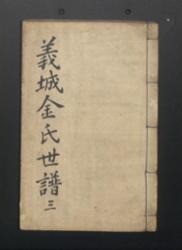 義城金氏世譜 三